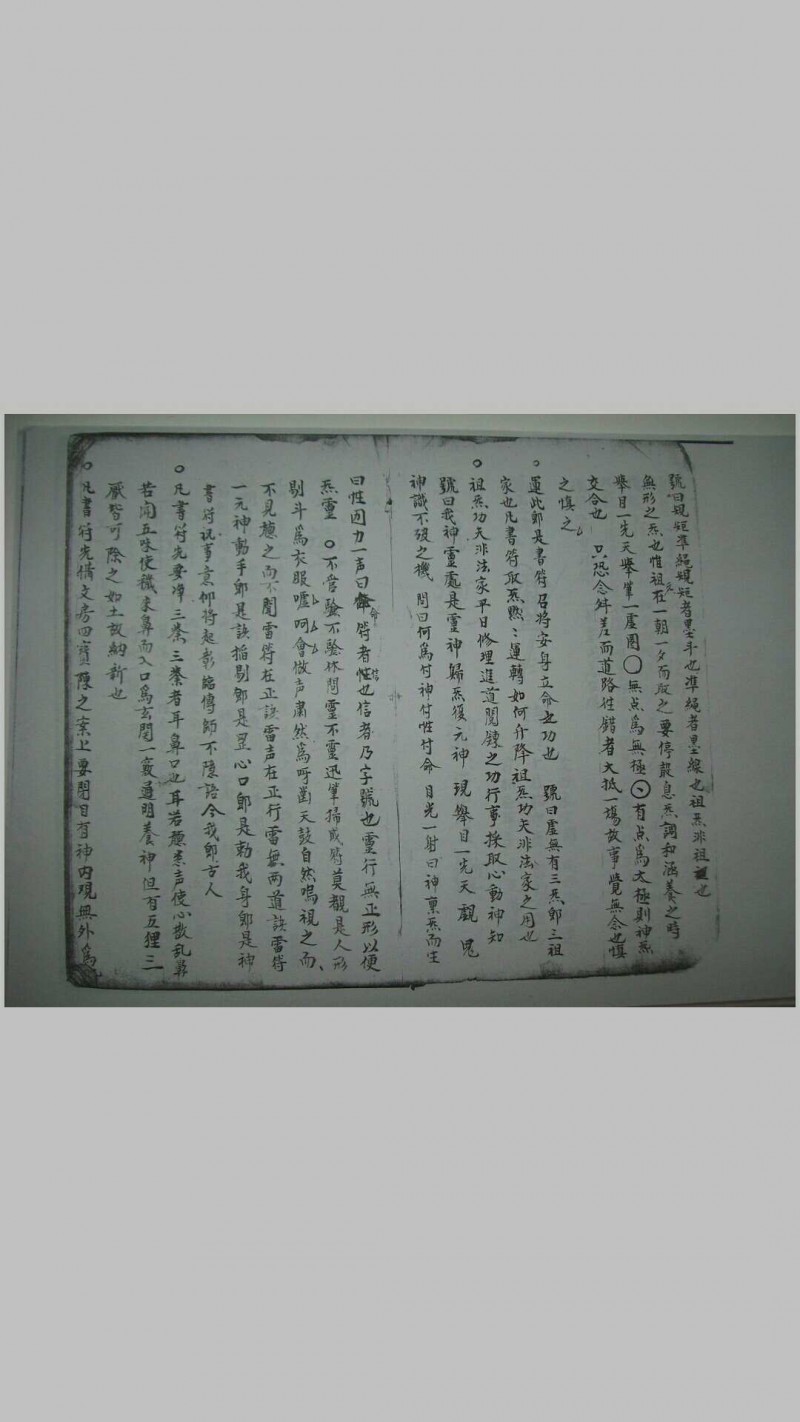 號曰規矩準繩規矩者墨斗也準繩者墨線也祖炁非祖炁也
無形之炁也惟祖炁在一朝一夕而取之要停散息炁調和涵養之時
舉目一先天舉筆一虛圈○無点為無極⊙有点為太極則神炁
交合也 只恐念舛差而道路徃錯者大抵一場故事覺無念也慎
之慎之
○運此即是書符召將安身立命之功也 號曰虛無有三炁即三祖
家也凡書符取炁熙〻運轉如何介降祖炁功夫非法家之用也
○祖炁功夫非法家平日修理進道間鍊之功行事採取心動神知
號曰我神靈處是靈神歸炁復元神 現舉目一先天 覩 鬼
神識不沒之機 問曰何為付神付性付命 目光一射曰神稟炁而生
曰性因力一声曰命 符者信也信者乃字號也靈行無正形以便
炁靈 ○不管驗不驗休問靈不靈迅筆掃成符莫覩是人形
剔斗為衣服嘘呵會做声肅然為呼齒天鼓自然鳴視之而
不見聽之而不聞雷符在正訣雷声在正行雷無兩道訣雷符
一元神動手即是訣搯剔即是罡心口即是勅我身即是神
書符祝事意仰符起彰臨傳師不隱語令我即方人
○凡書符先要凈三業三業者耳鼻口也耳若聽柔声使心散乱鼻
若聞五味使穢來鼻而入口為玄関一竅通明養神但有五狸三
厭皆可除之如土故納新也
○凡書符先備文房四寶陳之案上要閉目有神内現無外為